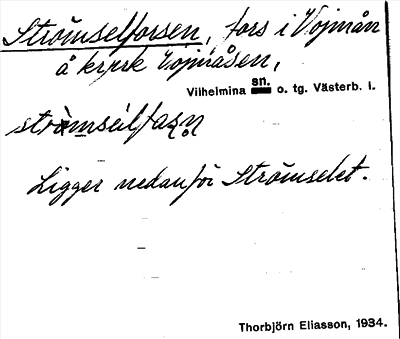 Strömselforsen, fors i Vojmån
å krnrk Vojmåsen,
Vilhelmina sn. o. tg. Västerb. l.
strömseilfaʂn̥
Ligger nedanför Strömselet.
Thorbjörn Eliasson, 1934.